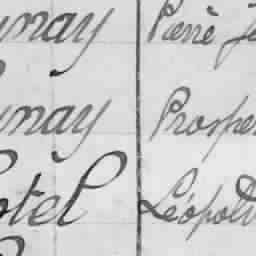 unay Pierre Je
unay Prosper
otel Léopold